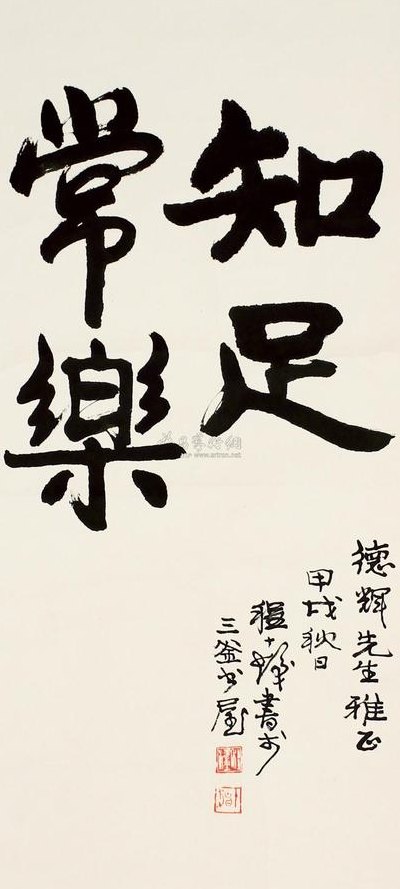 知足
常樂
德輝先生雅正
甲戌秋日
程十髮書於
三釜書屋
www.artron.net